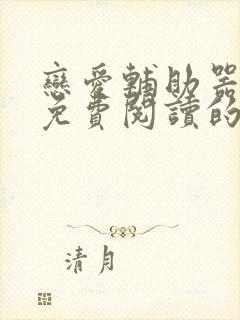 戀愛輔助器
免費閱讀的
清月